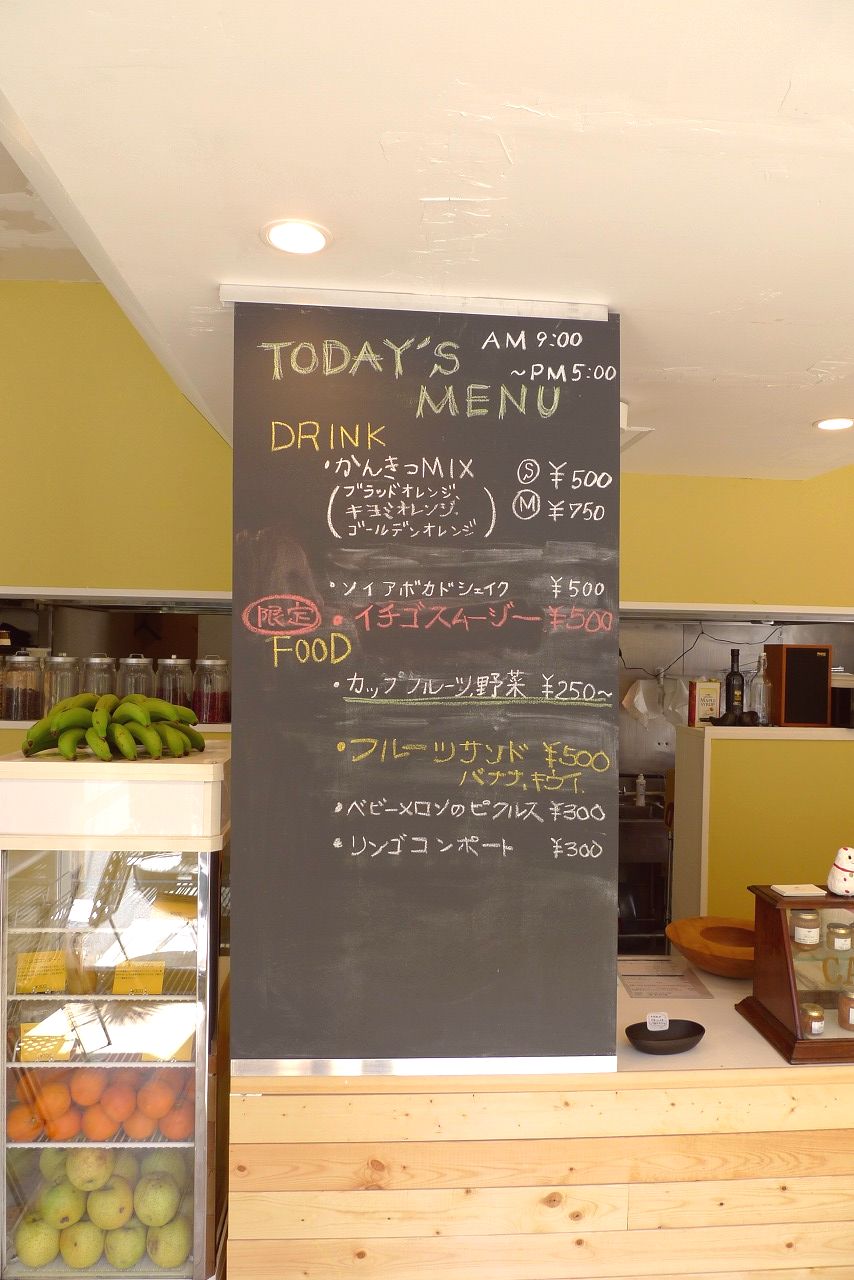 TODAY'S
MENU
AM 9:00
~PM5:00
DRINK
・かんきつMIX Ⓢ ¥500
(ブラッドオレンジ、 Ⓜ ¥750
キヨミオレンジ、
ゴールデンオレンジ)
・ソイアボカドシェイク ¥500
限定 ・イチゴスムージー ¥500
FOOD
・カップフルーツ、野菜 ¥250~
・フルーツサンド ¥500
バナナ、キウイ
・ベビーメロンのピクルス ¥300
・リンゴコンポート ¥300